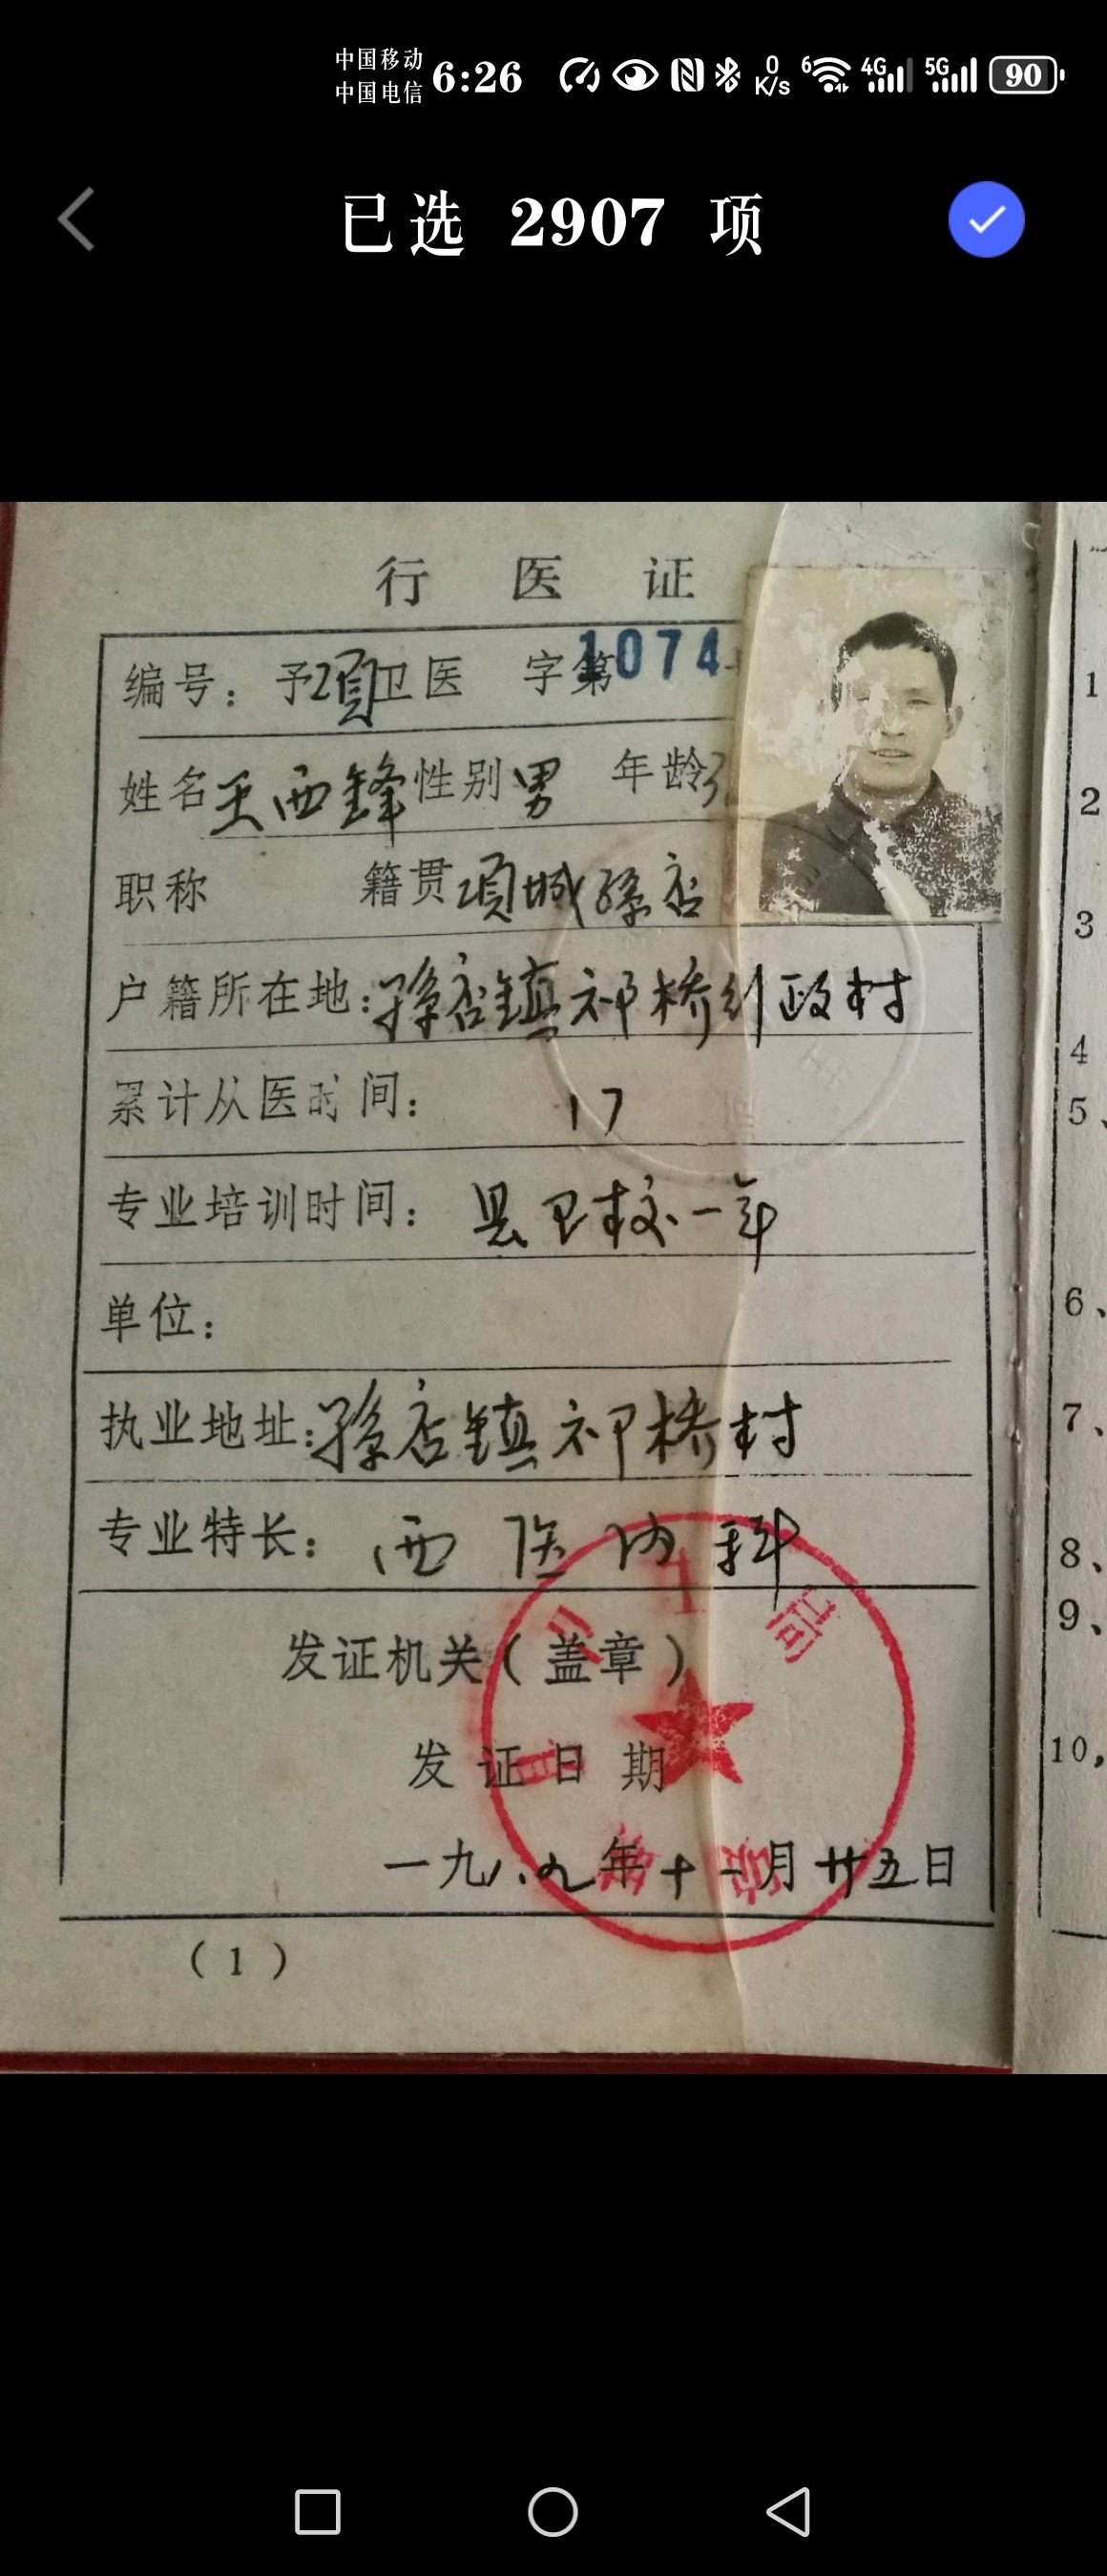 中国移动
中国电信 6:26 0 K/s 6 4G 5G 90
已选 2907 项
行医证
编号：予项卫医 字第1074
姓名王西鋒性别男 年龄3
职称 籍贯項城孫店
户籍所在地：孫店鎮祁桥行政村
累计从医时间： 17
专业培训时间： 县卫校一年
单位：
执业地址：孫店鎮祁桥村
专业特长： 西医内科
发证机关（盖章）
发证日期
一九八九年十一月廿五日
（1）
1
2
3
4
5、
6、
7、
8、
9、
10,